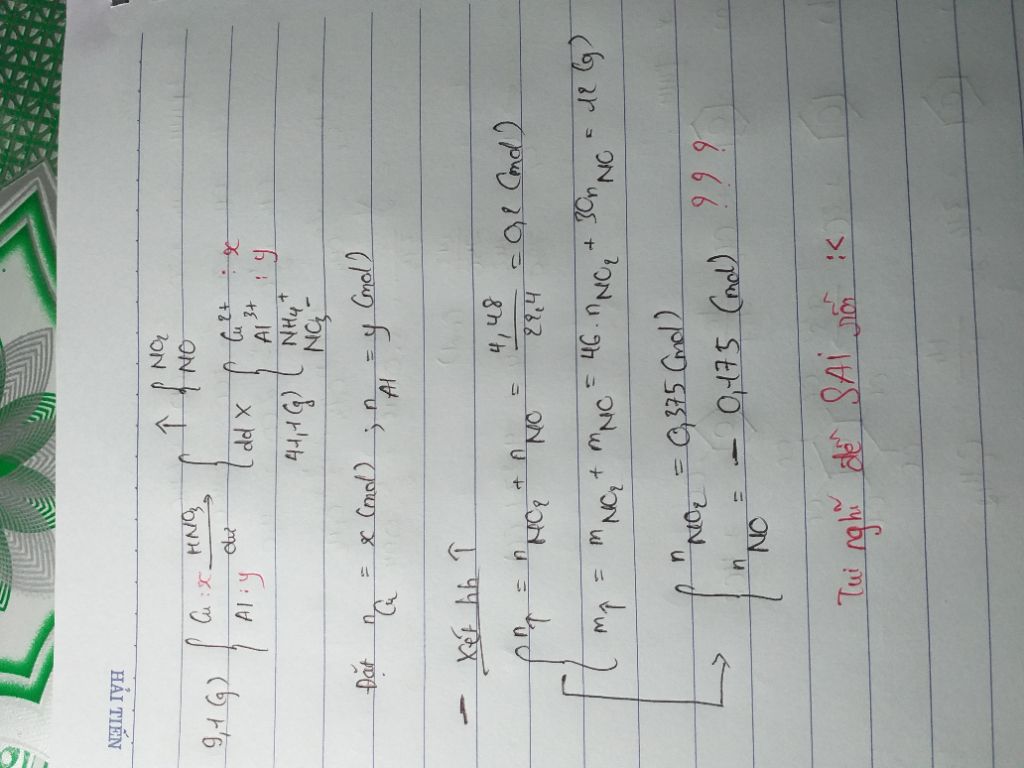 HẢI TIẾN
9,1 (g) { Cu : x HNO3 dư → { ↑ { NO2
Al : y { NO
dd X { Cu2+ : x
Al3+ : y
41,1 (g) NH4+
NO3-
Đặt nCu = x (mol) ; nAl = y (mol)
- Xét hh ↑
{ n↑ = nNO2 + nNO = 4,48 / 22,4 = 0,2 (mol)
m↑ = mNO2 + mNO = 46.nNO2 + 30nNO = 12 (g)
→ { nNO2 = 0,375 (mol)
nNO = - 0,175 (mol) ???
Tui nghĩ đề SAI rồi :<